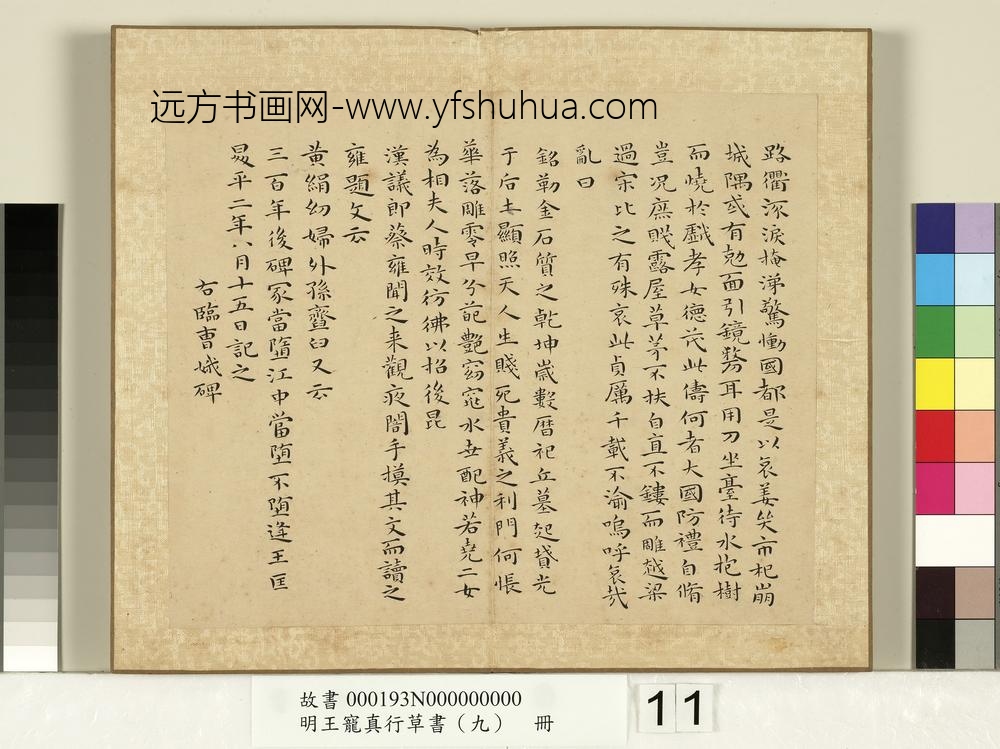 远方书画网-www.yfshuhua.com
路衢流淚掩涕驚慟國都是以哀姜哭市杞崩
城隅或有剋面引鏡剺耳用刀坐臺待水抱樹
而燒於戲孝女德茂此儔何者大國防禮自脩
豈況庶賤露屋草茅不扶自直不鏤而雕越梁
過宋比之有殊哀此貞厲千載不渝嗚呼哀哉
亂曰
銘勒金石質之乾坤歲數曆祀丘墓起墳光
于后土顯照天人生賤死貴義之利門何悵
華落雕零早分葩艷窈窕永世配神若堯二女
為相夫人時效彷彿以招後昆
漢議郎蔡雍聞之来觀夜闇手摸其文而讀之
雍題文云
黄絹幼婦外孫齏臼又云
三百年後碑冢當墮江中當墮不墮逢王匡
昇平二年八月十五日記之
右臨曹娥碑
故書 000193N000000000
明王寵真行草書（九） 冊
11